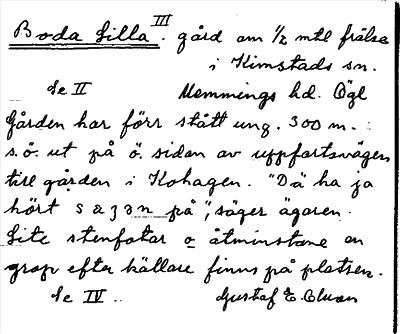 Boda Lilla III. gård om 1/2 mtl frälse
i Kimstads sn.
Se II Memmings hd. Ögl
Gården har förr stått ung. 300 m.
s.ö. ut på ö. sidan av uppfartsvägen
till gården i Kohagen. "Dä ha ja
hört sägan på", säger ägaren.
Lite stenfotar o åtminstone en
grop efter källare finns på platsen.
Se IV. Gustaf E.